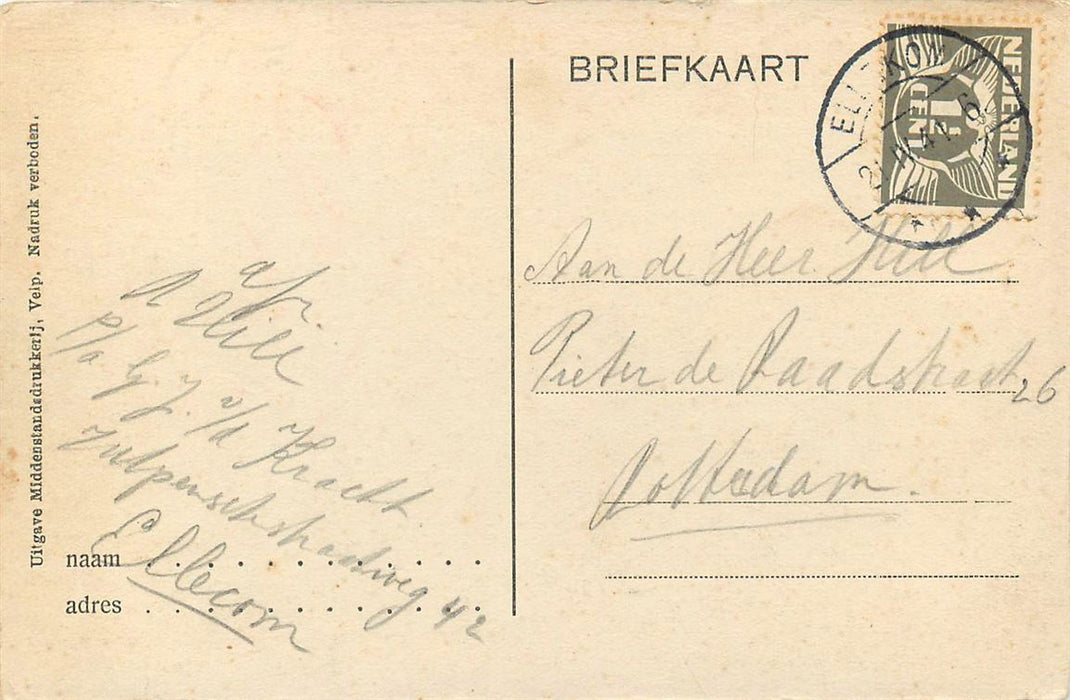 BRIEFKAART
NEDERLAND
1½
CENT
41
Aan de Heer Hill
Pieter de Raadstraat 26
Rotterdam.
afz.
A Hill
P/a. G. J. v/d Kracht
Zutpenschestraatweg 42
Ellecom
naam
adres
Uitgave Middenstandsdrukkerij, Velp. Nadruk verboden.